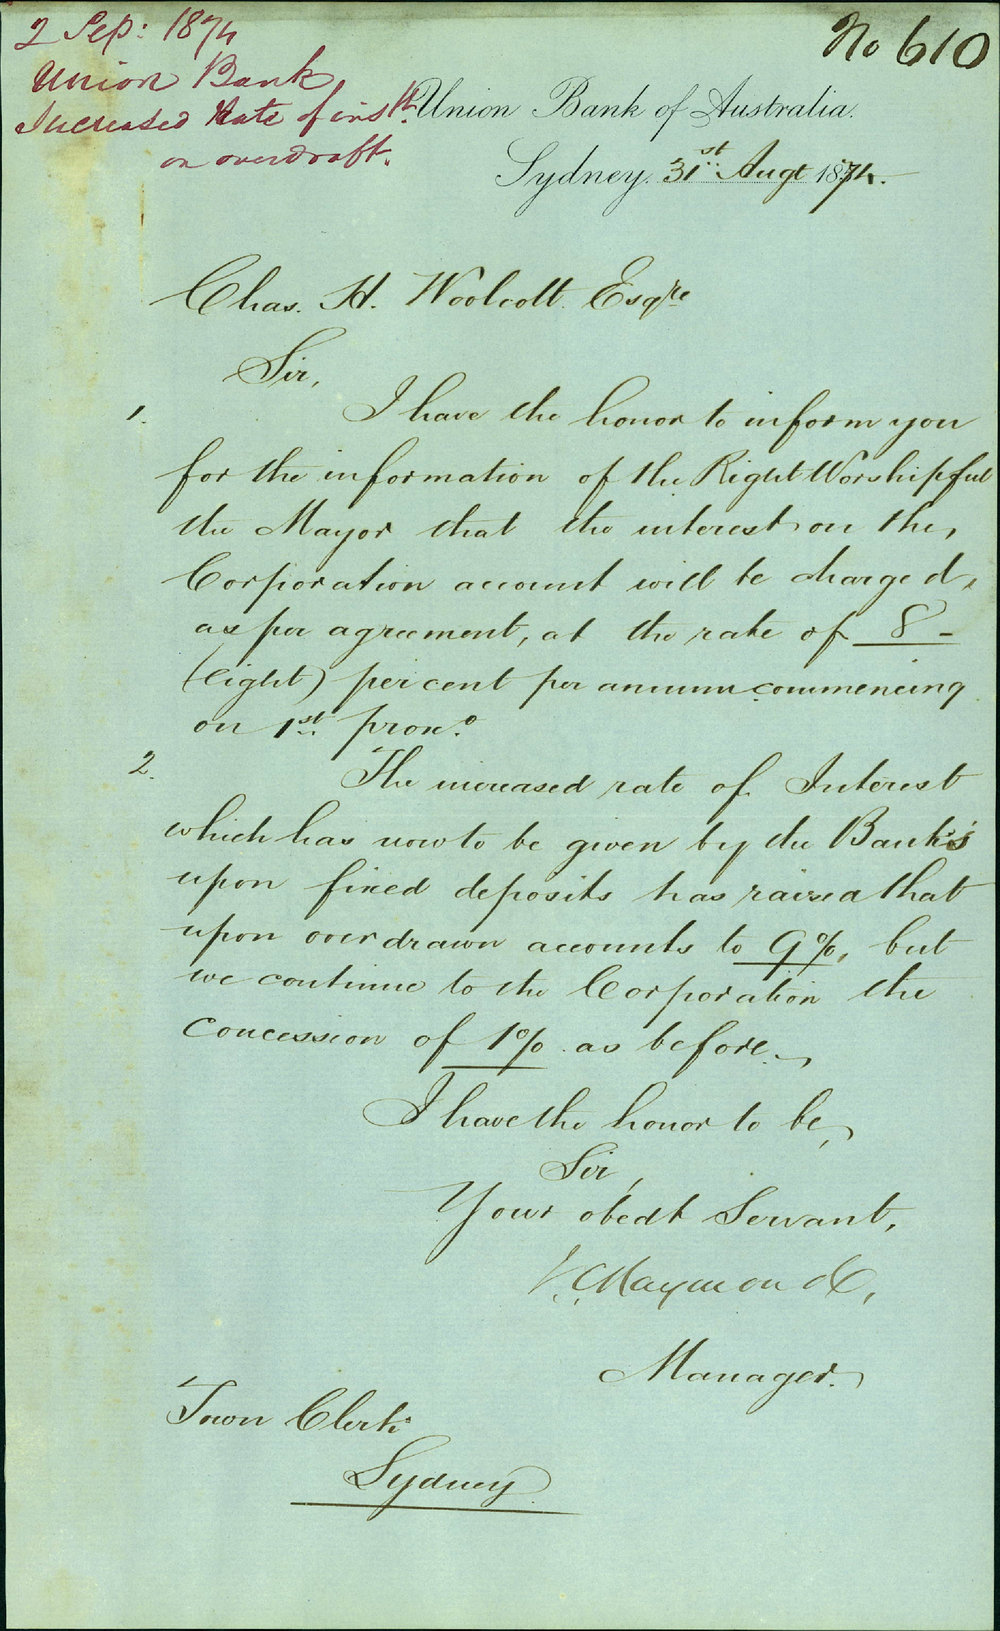 2 Sep: 1874
Union Bank
Increased Rate of inst.
on overdraft.
No 610
Union Bank of Australia.
Sydney. 31st Augt 1874.
Chas. H. Woolcott Esqre
Sir,
1. I have the honor to inform you
for the information of the Right Worshipful
the Mayor that the interest on the,
Corporation account will be charged,
as per agreement, at the rate of 8 -
(eight) per cent per annum commencing
on 1st proxo.
2. The increased rate of Interest
which has now to be given by the Bank's
upon fixed deposits has raised that
upon overdrawn accounts to 9%, but
we continue to the Corporation the
concession of 1% as before.
I have the honor to be,
Sir,
Your obedt Servant,
Manager.
Town Clerk
Sydney